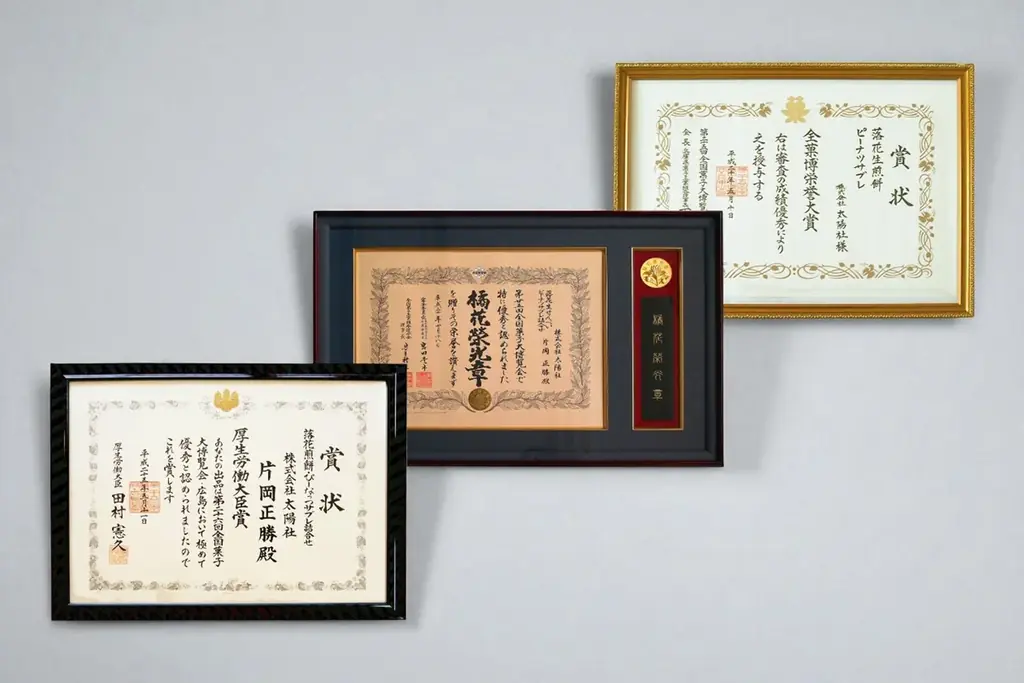 賞状
落花生煎餅
ピーナツサブレ
株式会社 太陽社様
全菓博栄誉大賞
右は審査の成績優秀により
之を授与する
平成二十年五月十日
第二十五回全国菓子大博覧
会長
落花生せんべい
ピーナツサブレ詰合せ
株式会社 太陽社
片岡正勝殿
第廿五回全国菓子大博覧会で
特に優秀と認められました
橘花榮光章
を贈りその栄誉を讃えます
橘花榮光章
賞状
落花煎餅・ぴーなっつサブレ詰合せ
株式会社 太陽社
片岡正勝殿
厚生労働大臣賞
あなたの出品は第二十六回全国菓子
大博覧会・広島において極めて
優秀と認められましたので
これを賞します
平成二十五年五月十一日
厚生労働大臣 田村憲久